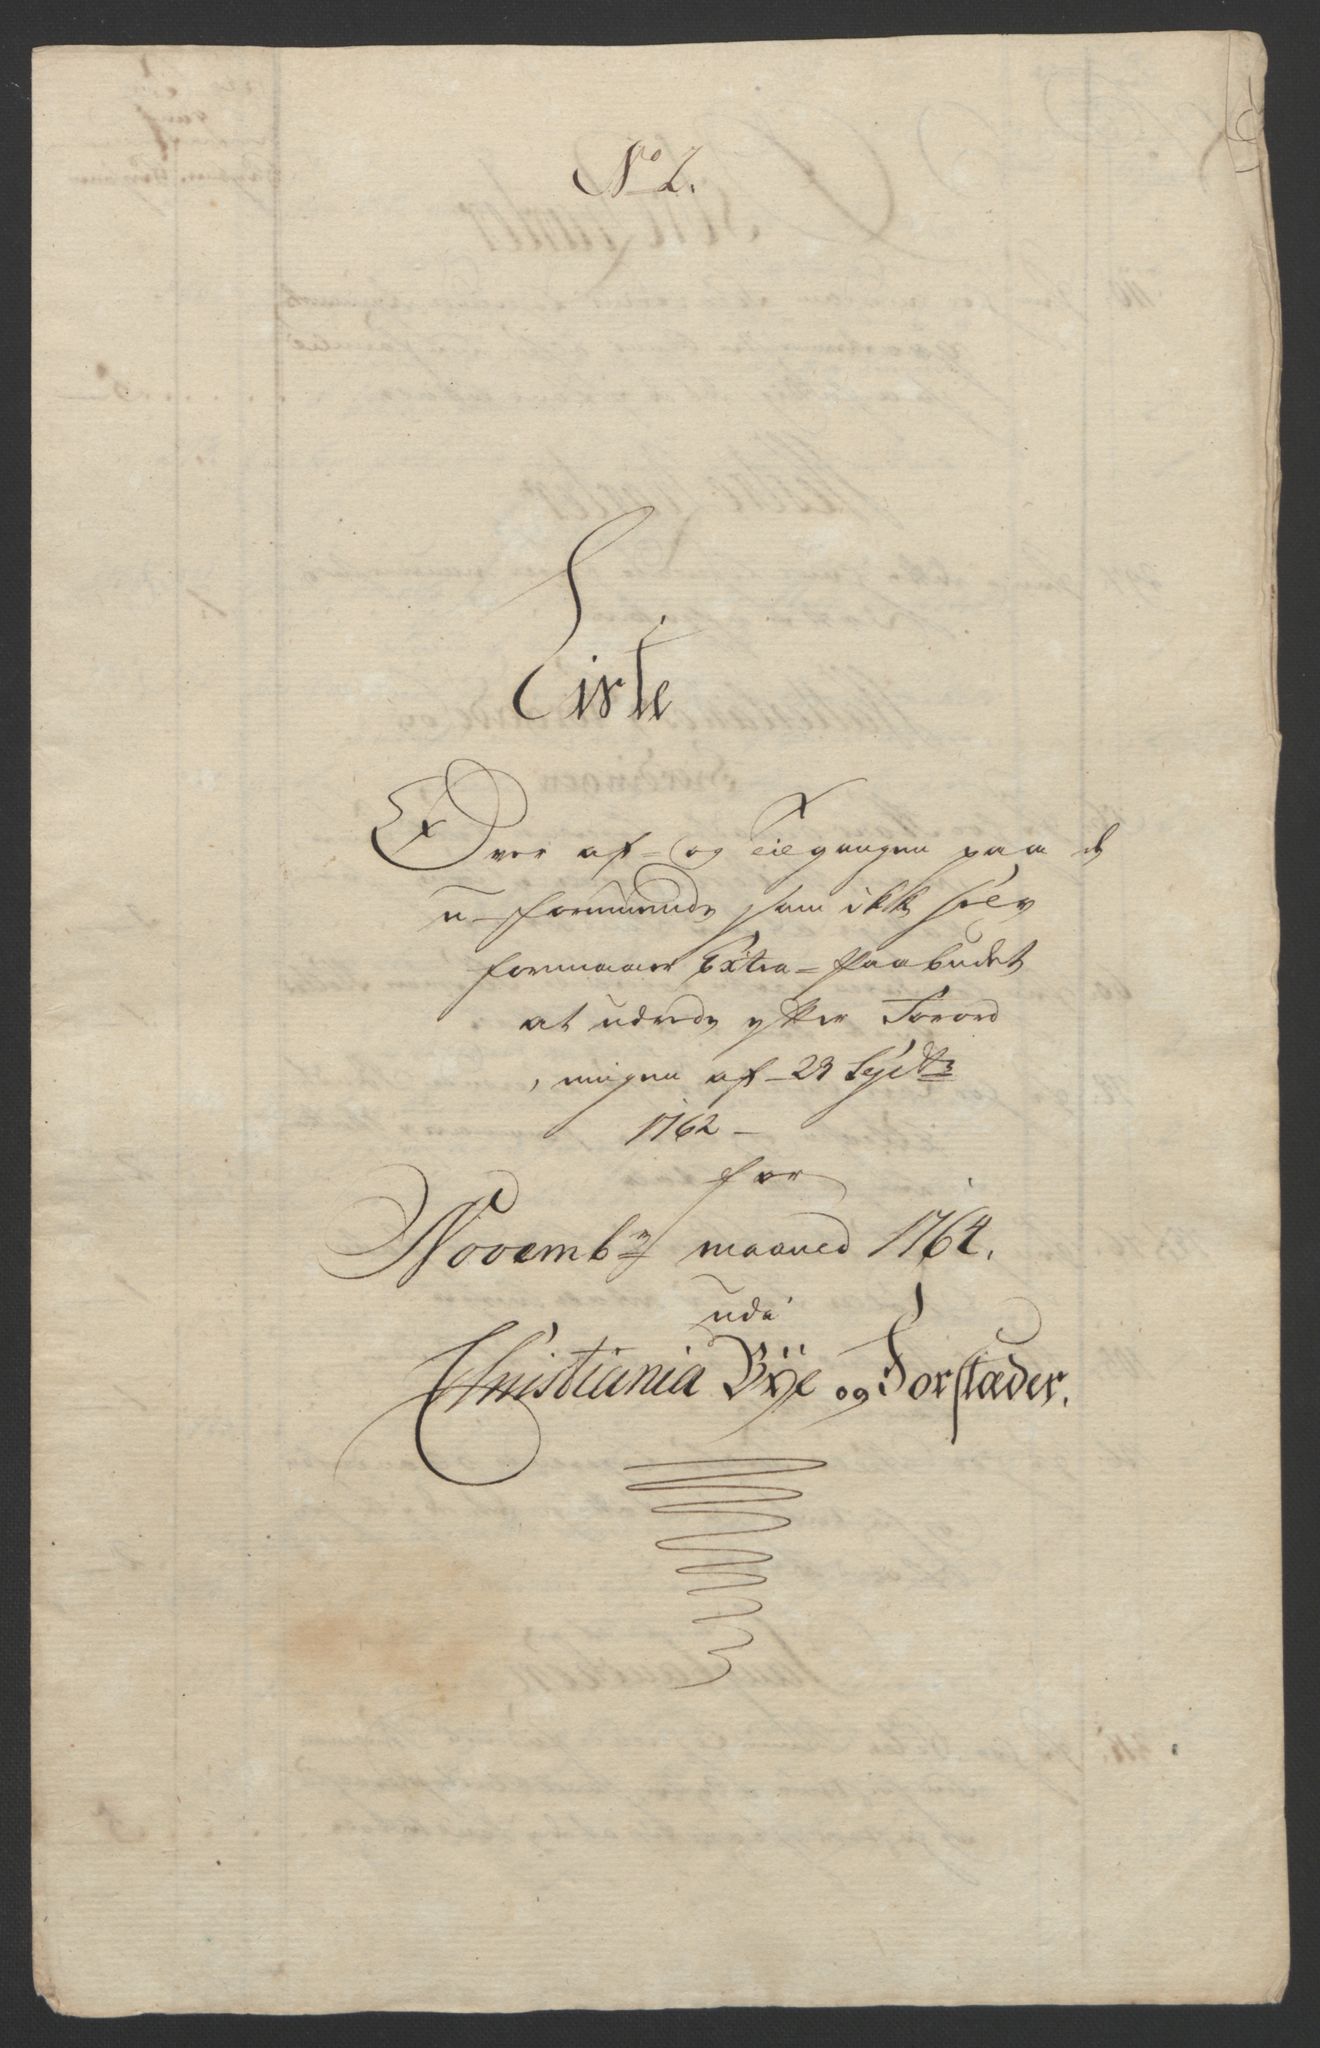 No 2.
Liste
Over af- og Tilgangen paa de
u-formuende som ikke selv
formaaer Extra-Paabudet
at udrede efter Forord
, ningen af 23 Septbr
1762 -
for
Novembr maaned 1764.
udi
Christiania Bÿe og Forstæder.